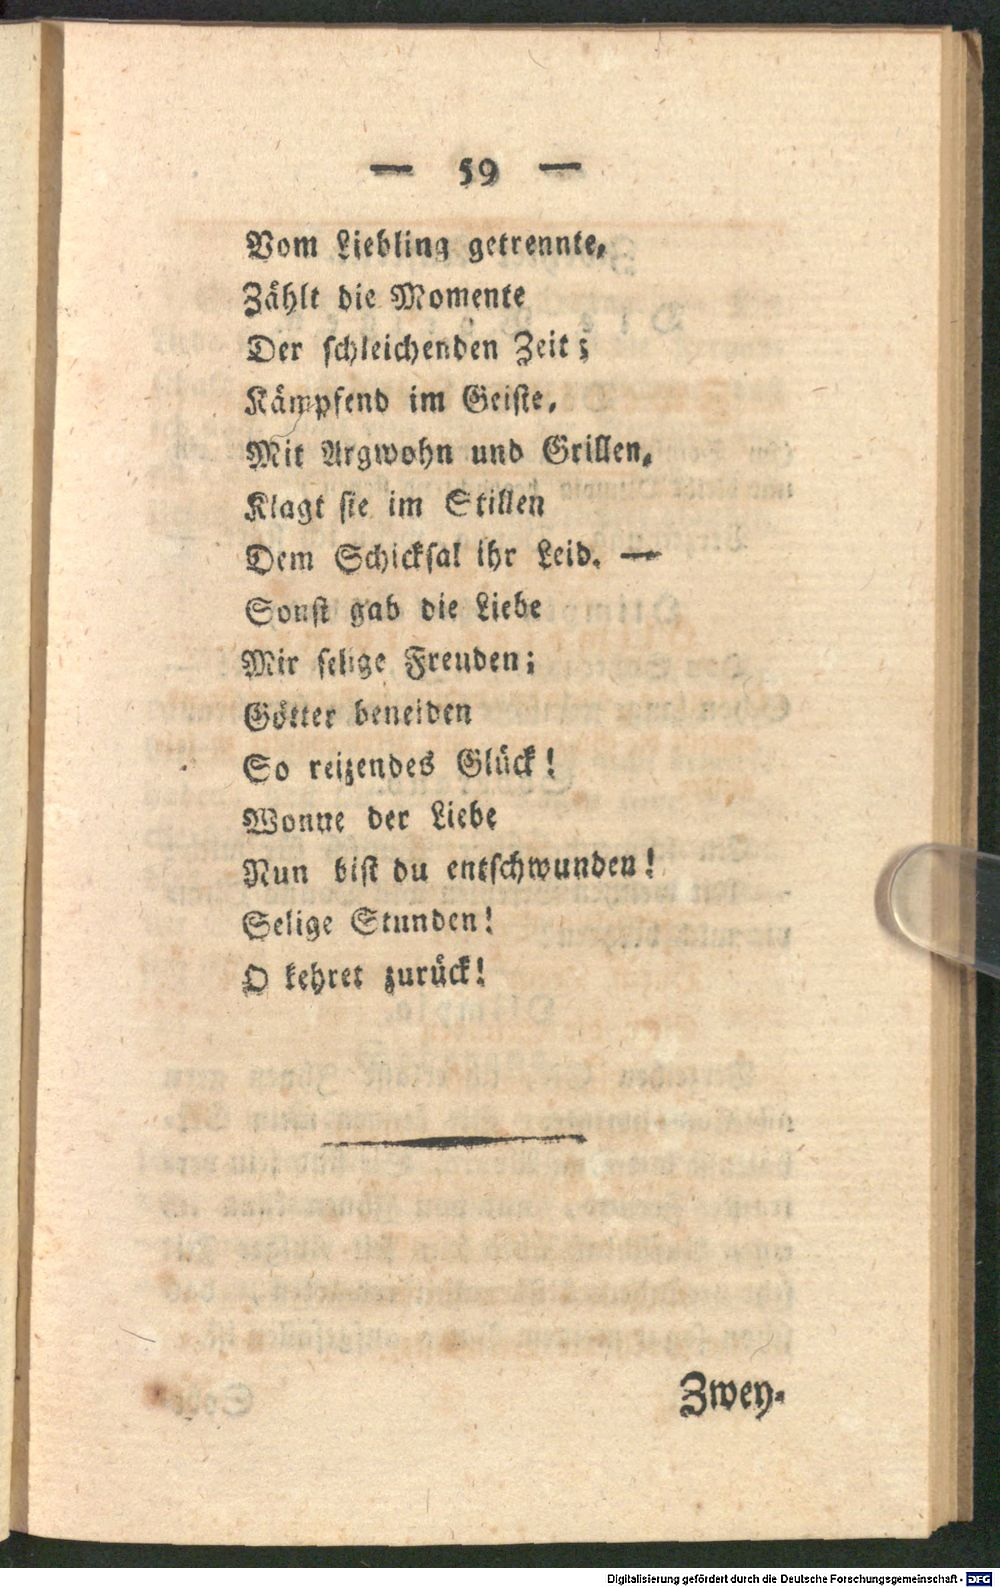 — 59 —
Vom Liebling getrennte,
Zählt die Momente
Der schleichenden Zeit;
Kämpfend im Geiste,
Mit Argwohn und Grillen,
Klagt sie im Stillen
Dem Schicksal ihr Leid. —
Sonst gab die Liebe
Mir selige Freuden;
Götter beneiden
So reizendes Glück!
Wonne der Liebe
Nun bist du entschwunden!
Selige Stunden!
O kehret zurück!
Zwey-
Digitalisierung gefördert durch die Deutsche Forschungsgemeinschaft - DFG